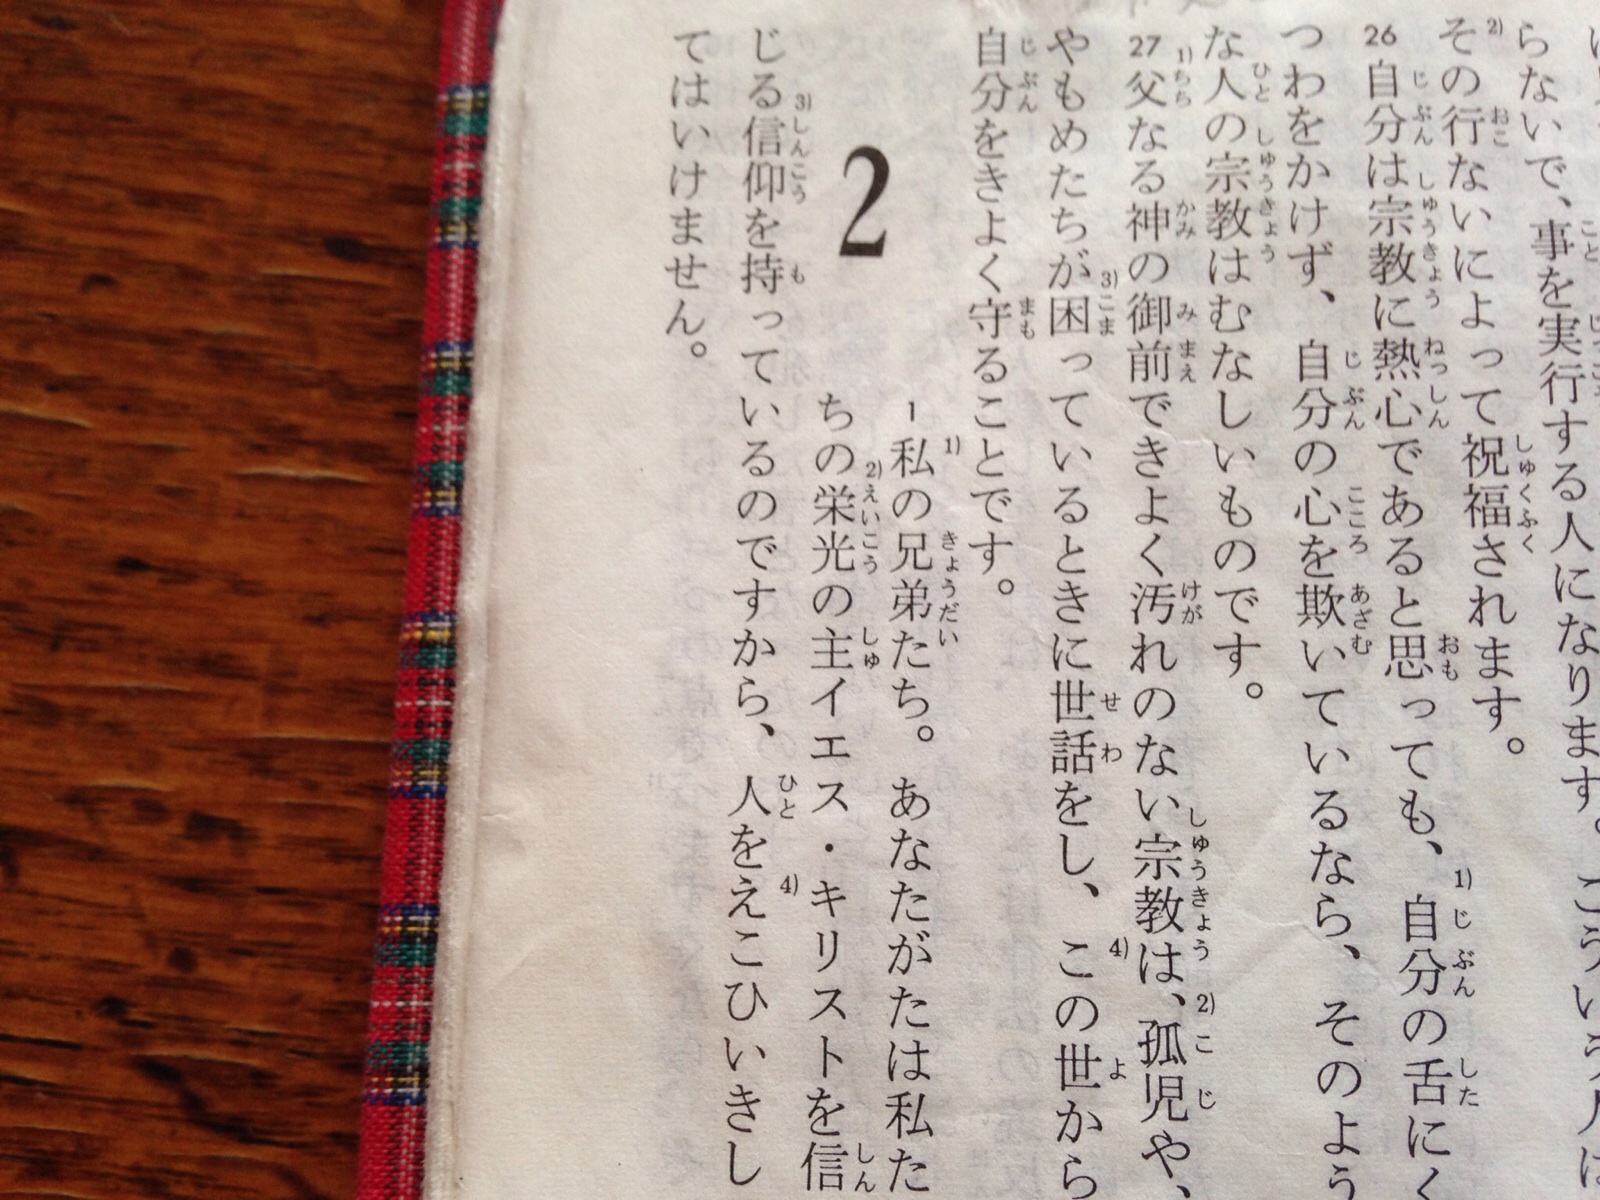 らないで、事を実行する人になります。こういう人は
2)その行ないによって祝福されます。
26 自分は宗教に熱心であると思っても、1)自分の舌にく
つわをかけず、自分の心を欺いているなら、そのよう
な人の宗教はむなしいものです。
27 1)父なる神の御前できよく汚れのない宗教は、2)孤児や、
やもめたちが3)困っているときに世話をし、4)この世から
自分をきよく守ることです。
2
1 1)私の兄弟たち。あなたがたは私た
ちの2)栄光の主イエス・キリストを信
じる3)信仰を持っているのですから、人を4)えこひいきし
てはいけません。